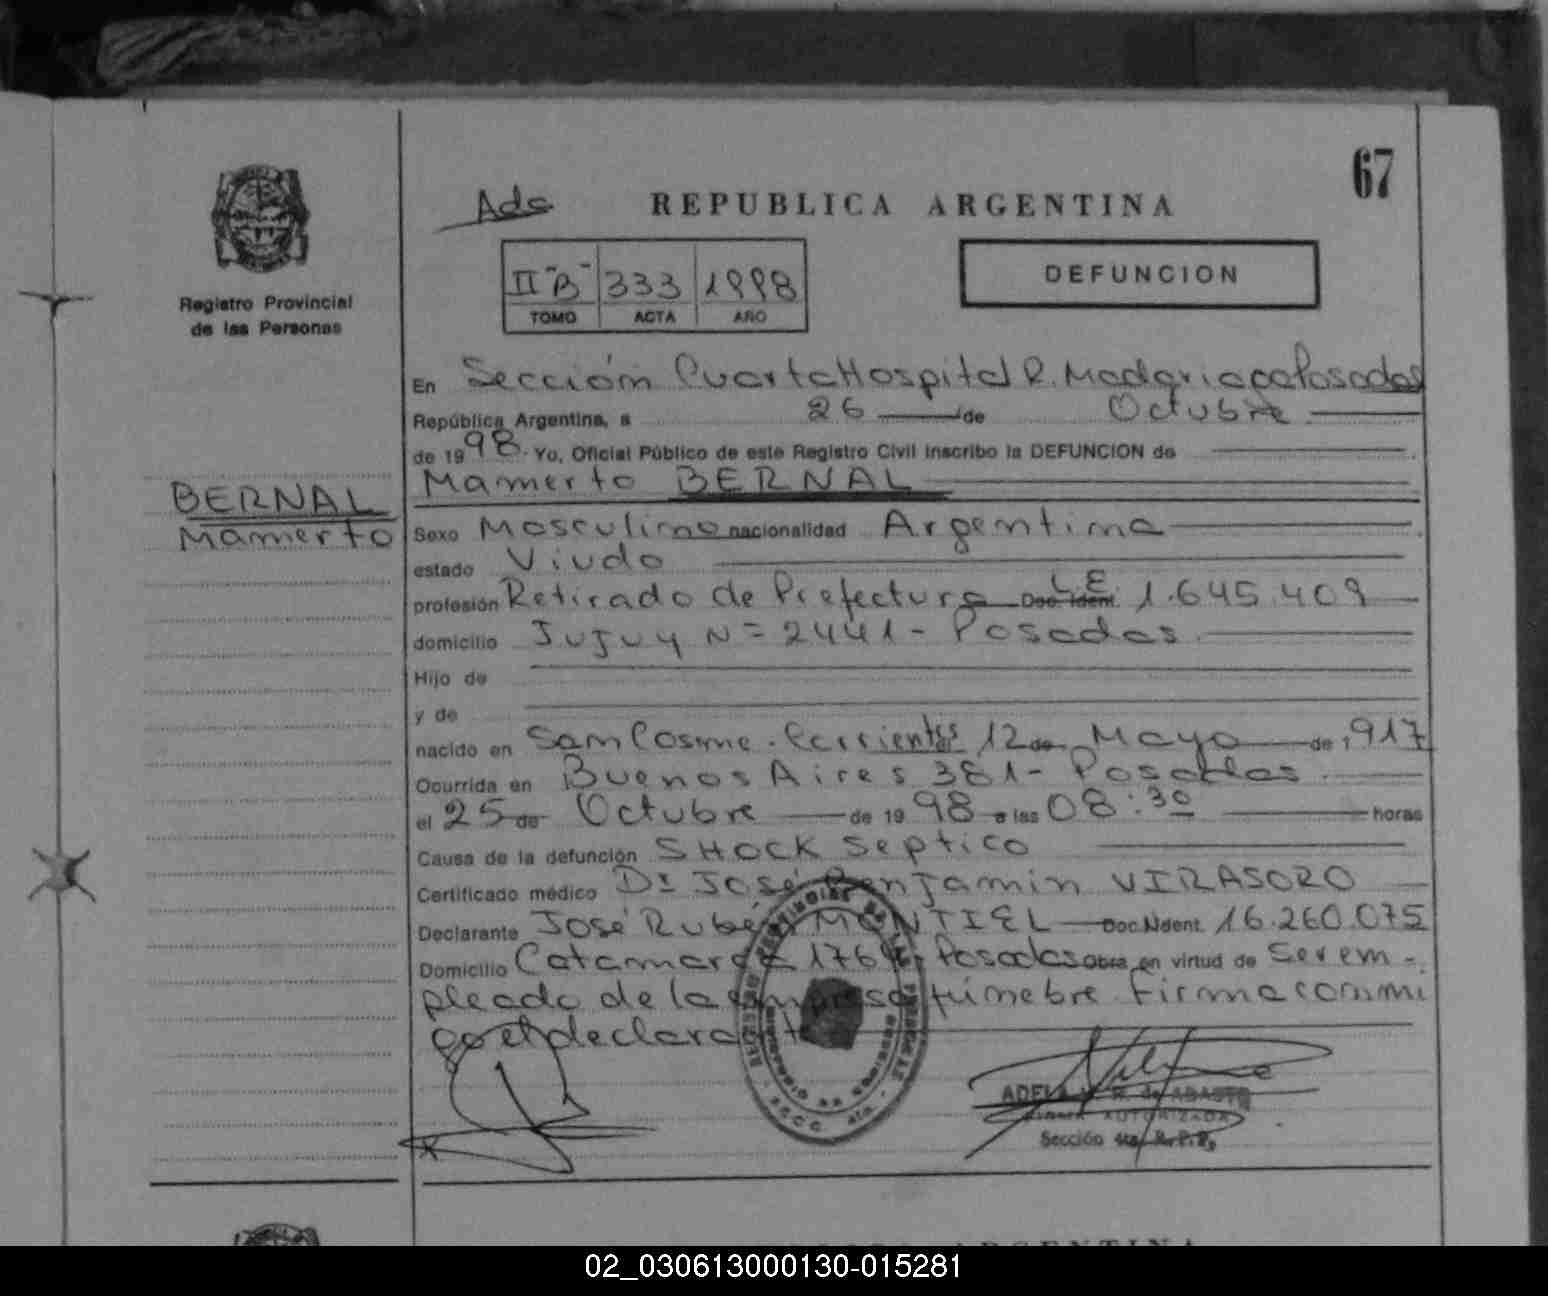 67
Ada
REPUBLICA ARGENTINA
Registro Provincial
de las Personas
II "B" 333 1998
TOMO ACTA AÑO
DEFUNCION
En Sección Cuarta Hospital R. Madariaga Posadas
República Argentina, a 26 de Octubre
de 1998. Yo, Oficial Público de este Registro Civil inscribo la DEFUNCION de
Mamerto BERNAL
BERNAL
Mamerto
Sexo Masculino nacionalidad Argentina
estado Viudo
profesión Retirado de Prefectura Doc. Ident. L.E 1.645.409
domicilio Jujuy N= 2441 - Posadas
Hijo de
y de
nacido en San Cosme. Corrientes 12 de Mayo de 1917
Ocurrida en Buenos Aires 381 - Posadas
el 25 de Octubre de 1998 a las 08:30 horas
Causa de la defunción SHOCK septico
Certificado médico Dr José Benjamin VIRASORO
Declarante José Rubén MONTIEL Doc. N Ident. 16.260.075
Domicilio Catamarca 1764 Posadas obra en virtud de ser em-
pleado de la empresa fúnebre. Firma conmi
go el declarante
ADELA R. de
AUTORIZADA
Sección 4ta. R.P.P.
REPUBLICA ARGENTINA
02_030613000130-015281